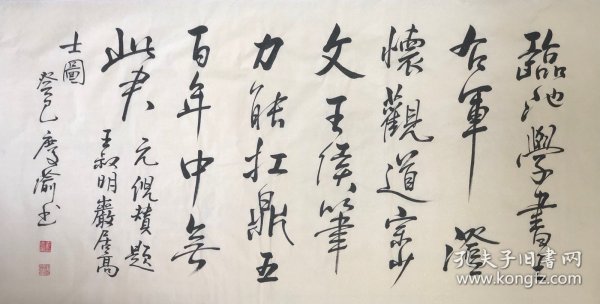 臨池學書王
右軍澄
懷觀道宗少
文王侯筆
力能扛鼎五
百年中無
此君 元倪瓚題
王叔明巖居高
士圖
癸巳 慶瀹书
孔夫子旧书网
www.kongfz.com